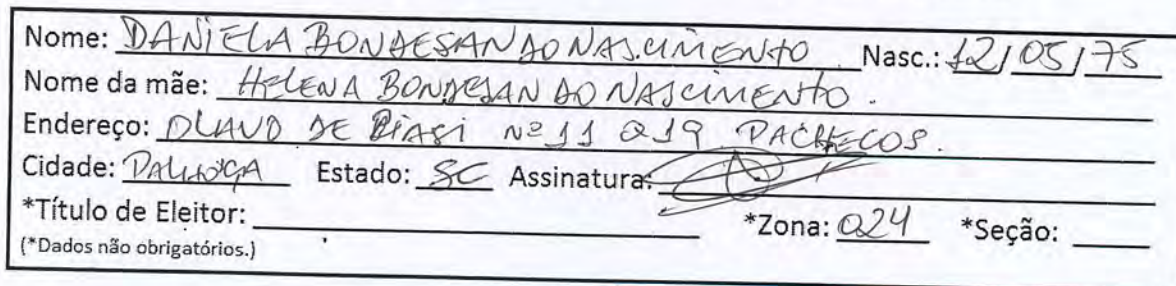 Nome: DANIELA BONDESAN DO NASCIMENTO Nasc.: 12/05/75
Nome da mãe: HELENA BONDESAN DO NASCIMENTO.
Endereço: OLAVO DE BIASI Nº 11 Q19 PACHECOS.
Cidade: PALHOÇA Estado: SC Assinatura:
*Título de Eleitor: *Zona: 024 *Seção:
(*Dados não obrigatórios.)